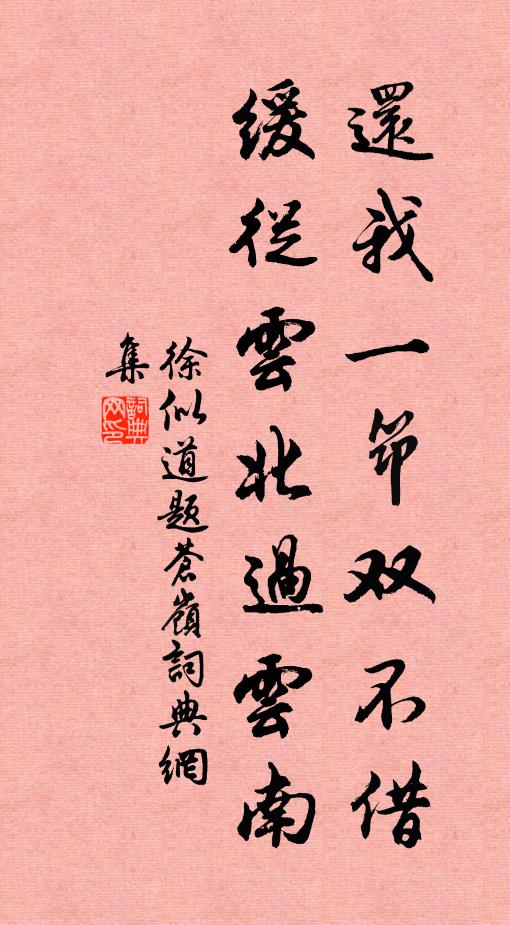 還我一笻双不借
緩從雲北過雲南
徐似道题蒼嶺詞典網
集
詞典网印